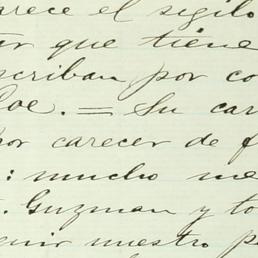 arece el sigilo
que tiene
scriban por co
oe. = Su car
or carecer de f
: mucho me
. Guzman y to
uir nuestro p